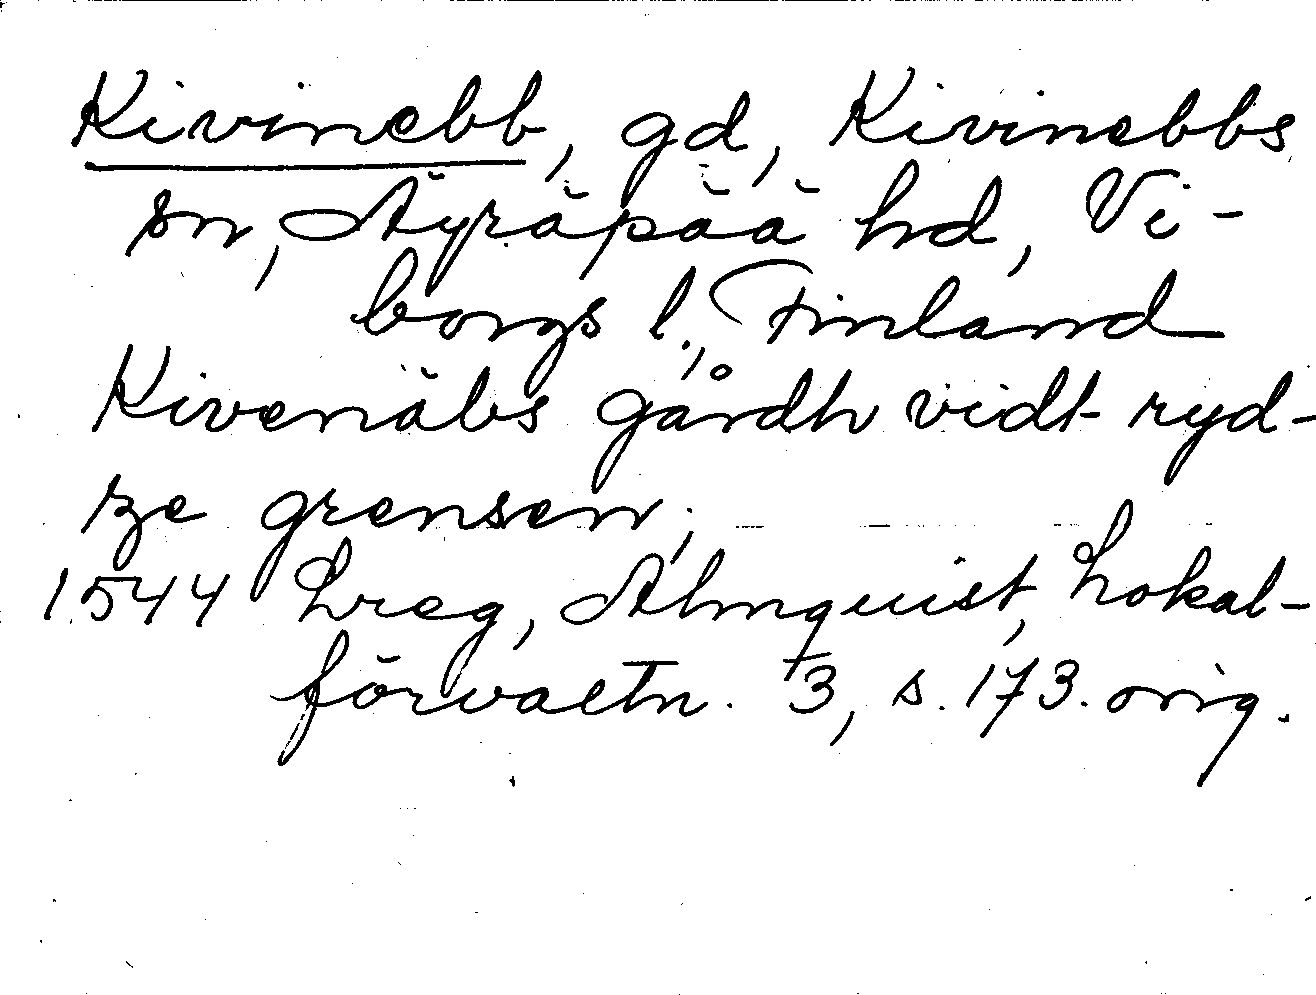 Kivinebb, gd, Kivinebbs
sn, Äyräpää hd, Vi-
borgs l., Finland
Kivenäbs gårdh vidt ryd-
ze grensen,
1544 Lreg, Almquist, Lokal-
förvaltn. 3, s. 173. orig.